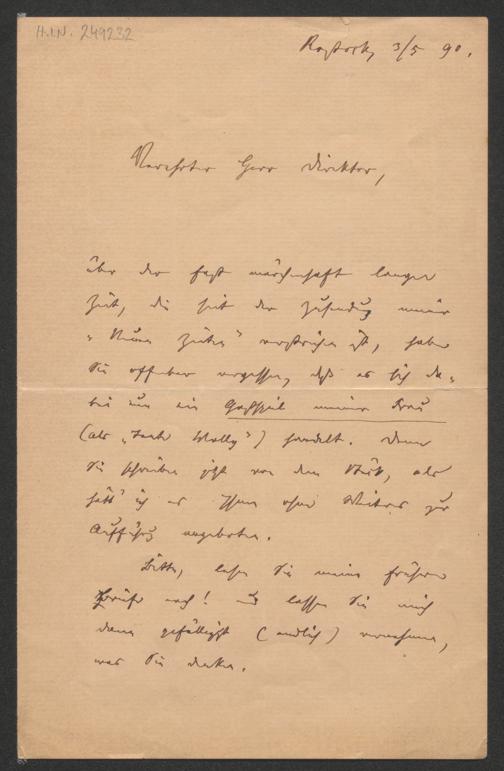 H.I.N. 249232
Rostock, 3/5 90.
Verehrter Herr Direktor,
über der fast märchenhaft langen
Zeit, die seit der Zusendung meiner
"Neuen Zeiten" verstrichen ist, haben
Sie offenbar vergessen, daß es sich da-
bei um ein Gastspiel meiner Frau
(als "Tante Wally") handelt. Denn
Sie schreiben jetzt von dem Stück, als
hätt' ich es Ihnen ohne Weiteres zur
Aufführung angeboten.
Bitte, lesen Sie meine früheren
Briefe nach! und lassen Sie mich
dann gefälligst (endlich) vernehmen,
was Sie denken.